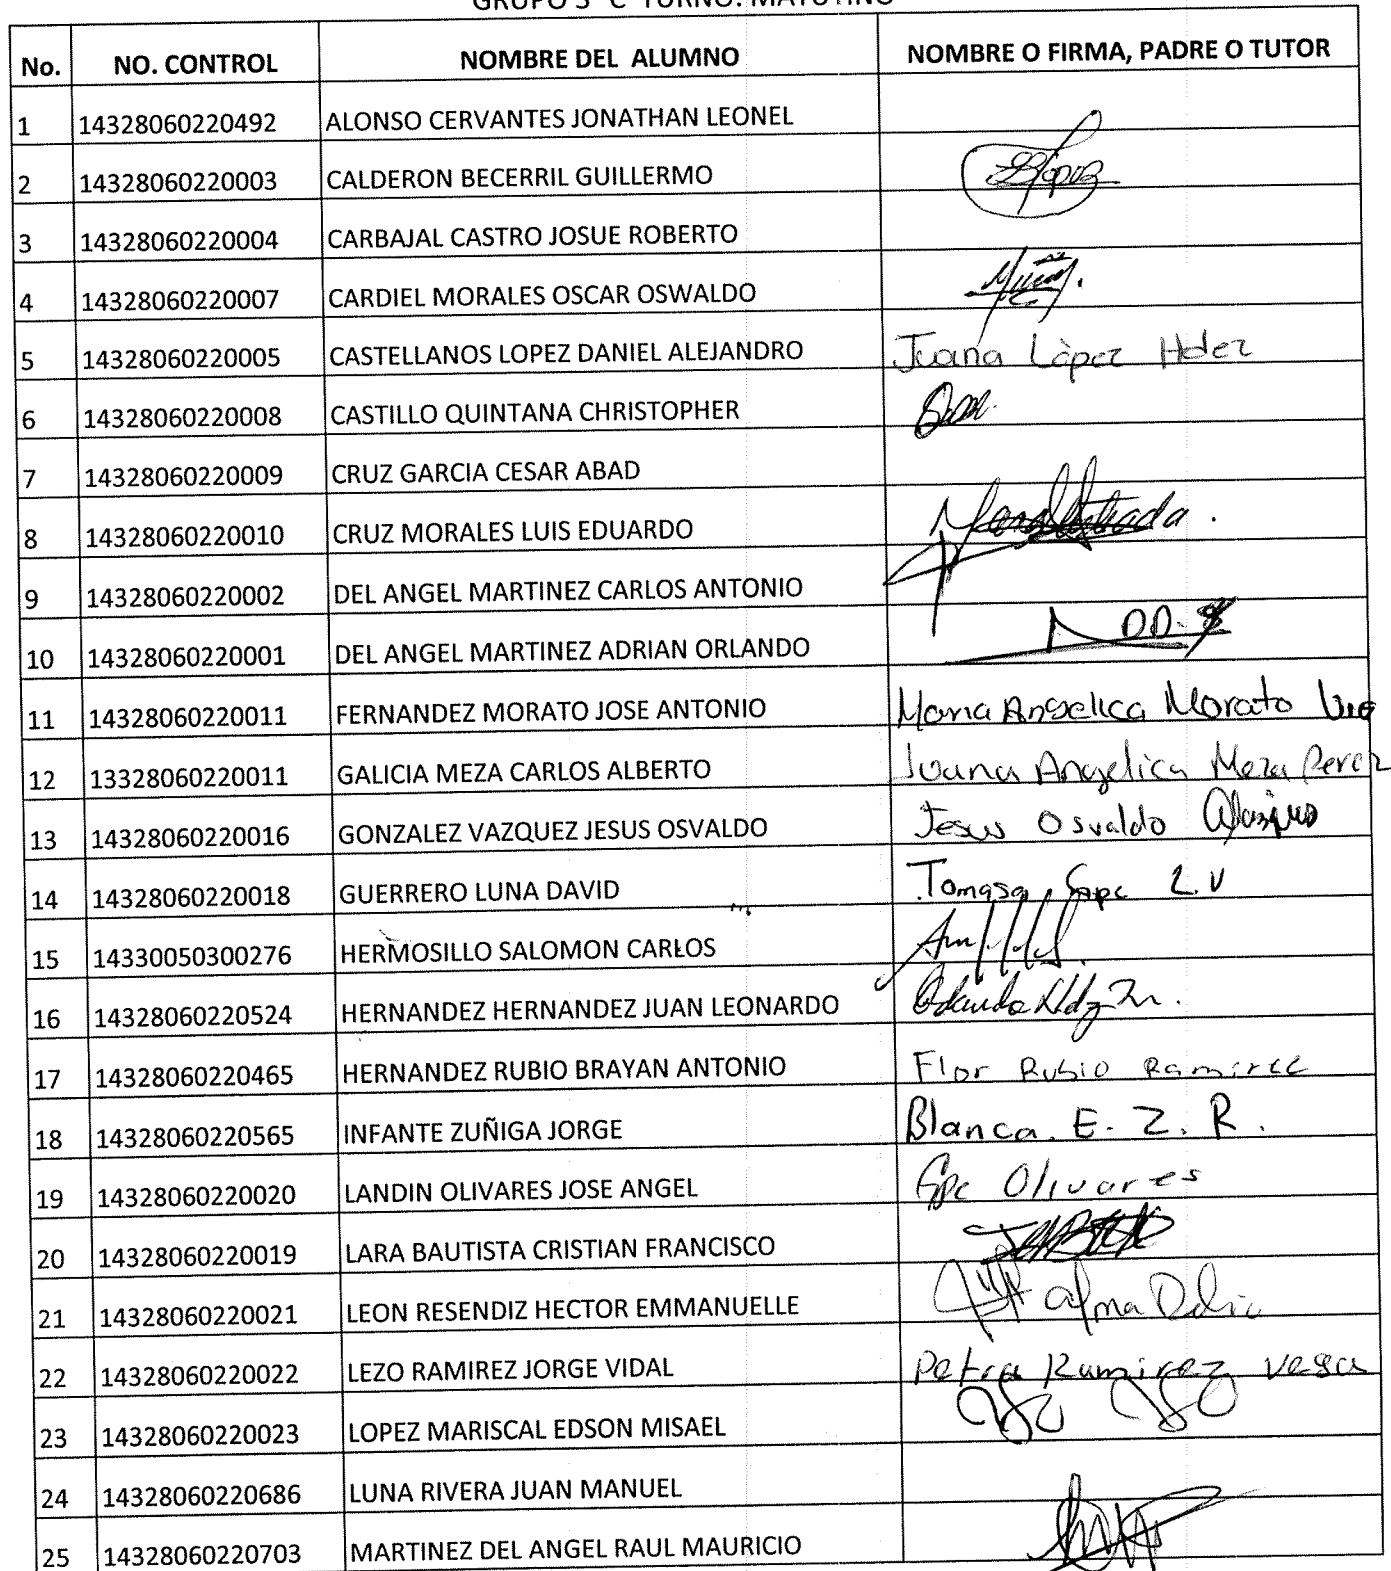 GRUPO 3° C TURNO: MATUTINO
No. NO. CONTROL NOMBRE DEL ALUMNO NOMBRE O FIRMA, PADRE O TUTOR
1 14328060220492 ALONSO CERVANTES JONATHAN LEONEL
2 14328060220003 CALDERON BECERRIL GUILLERMO
3 14328060220004 CARBAJAL CASTRO JOSUE ROBERTO
4 14328060220007 CARDIEL MORALES OSCAR OSWALDO
5 14328060220005 CASTELLANOS LOPEZ DANIEL ALEJANDRO Juana Lòpez Hdez
6 14328060220008 CASTILLO QUINTANA CHRISTOPHER
7 14328060220009 CRUZ GARCIA CESAR ABAD
8 14328060220010 CRUZ MORALES LUIS EDUARDO
9 14328060220002 DEL ANGEL MARTINEZ CARLOS ANTONIO
10 14328060220001 DEL ANGEL MARTINEZ ADRIAN ORLANDO
11 14328060220011 FERNANDEZ MORATO JOSE ANTONIO Maria Angelica Morato
12 13328060220011 GALICIA MEZA CARLOS ALBERTO Juana Angelica Meza Perez
13 14328060220016 GONZALEZ VAZQUEZ JESUS OSVALDO Jesus Osvaldo
14 14328060220018 GUERRERO LUNA DAVID Tomasa Gpe L.V
15 14330050300276 HERMOSILLO SALOMON CARLOS
16 14328060220524 HERNANDEZ HERNANDEZ JUAN LEONARDO
17 14328060220465 HERNANDEZ RUBIO BRAYAN ANTONIO Flor Rubio Ramirez
18 14328060220565 INFANTE ZUÑIGA JORGE Blanca. E. Z. R.
19 14328060220020 LANDIN OLIVARES JOSE ANGEL Gpe Olivares
20 14328060220019 LARA BAUTISTA CRISTIAN FRANCISCO
21 14328060220021 LEON RESENDIZ HECTOR EMMANUELLE Alma Delia
22 14328060220022 LEZO RAMIREZ JORGE VIDAL Petra Ramirez Vega
23 14328060220023 LOPEZ MARISCAL EDSON MISAEL
24 14328060220686 LUNA RIVERA JUAN MANUEL
25 14328060220703 MARTINEZ DEL ANGEL RAUL MAURICIO